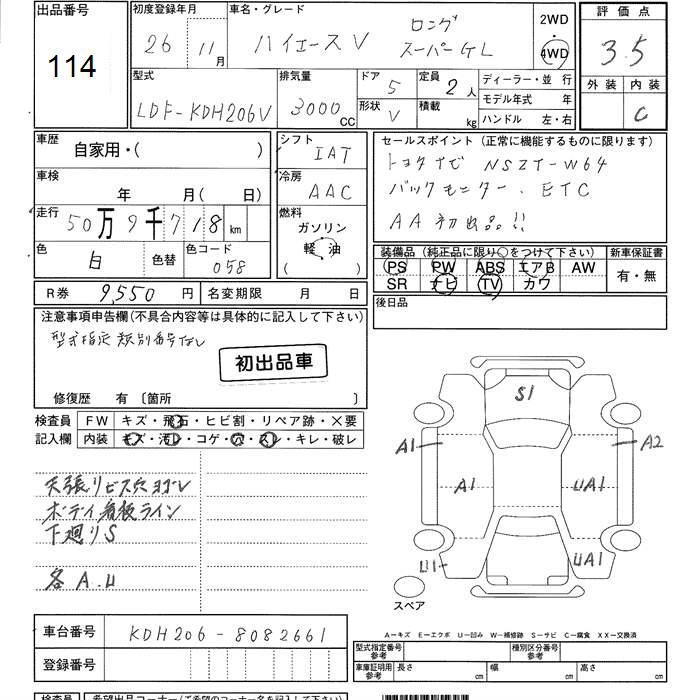 出品番号
114
初度登録年月
26年 11月
車名・グレード
ハイエースV ロング
スーパーGL
2WD
4WD
評価点
3.5
外装 内装
C
型式
LDF-KDH206V
排気量
3000 CC
ドア 5
形状 V
定員 2人
積載 kg
ディーラー・並行
モデル年式 年
ハンドル 左・右
車歴
自家用・( )
シフト
IAT
車検
年 月( 日)
冷房
AAC
走行
50万9千718 km
燃料
ガソリン
軽油
( )
色
白
色替
色コード
058
セールスポイント (正常に機能するものに限ります)
トヨタナビ NSZT-W64
バックモニター、ETC
AA初出品!!
装備品 (純正品に限り○をつけて下さい)
PS PW ABS エアB AW
SR ナビ TV カワ
新車保証書
有・無
R券 9,550円
名変期限 月 日
後日品
注意事項申告欄(不具合内容等は具体的に記入して下さい)
型式指定類別番号なし
初出品車
修復歴 有 [箇所 ]
検査員
記入欄
FW キズ・飛石・ヒビ割・リペア跡・X要
内装 キズ・汚レ・コゲ・穴・スレ・キレ・破レ
天張リビス穴ヨゴレ
ボディ看板ライン
下廻りS
各A.U
S1
A1
A2
A1
UA1
U1
UA1
スペア
A-キズ E-エクボ U-凹み W-補修跡 S-サビ C-腐食 XX-交換済
車台番号 KDH206-8082661
登録番号
型式指定番号
参考
種別区分番号
参考
車庫証明用
参考
長さ cm 幅 cm 高さ cm
検査員
希望出品コーナー(ご希望のコーナー名を記入して下さい)